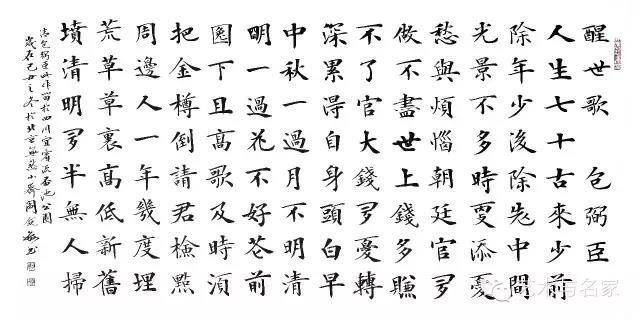 醒世歌 包弼臣
人生七十古來少前
除年少後除老中間
光景不多時更添憂
愁與煩惱朝廷官多
做不盡世上錢多賺
不了官大錢多憂轉
深累得自身頭白早
中秋一過月不明清
明一過花不好花前
囝下且高歌及時須
把金樽倒請君檢點
周邊人一年幾度埋
荒草草裏高低新舊
墳清明多半無人掃
清包弼臣作留於四川宜賓流杯池公園
歲在己丑之冬於北京無小齋書
艺术与名家